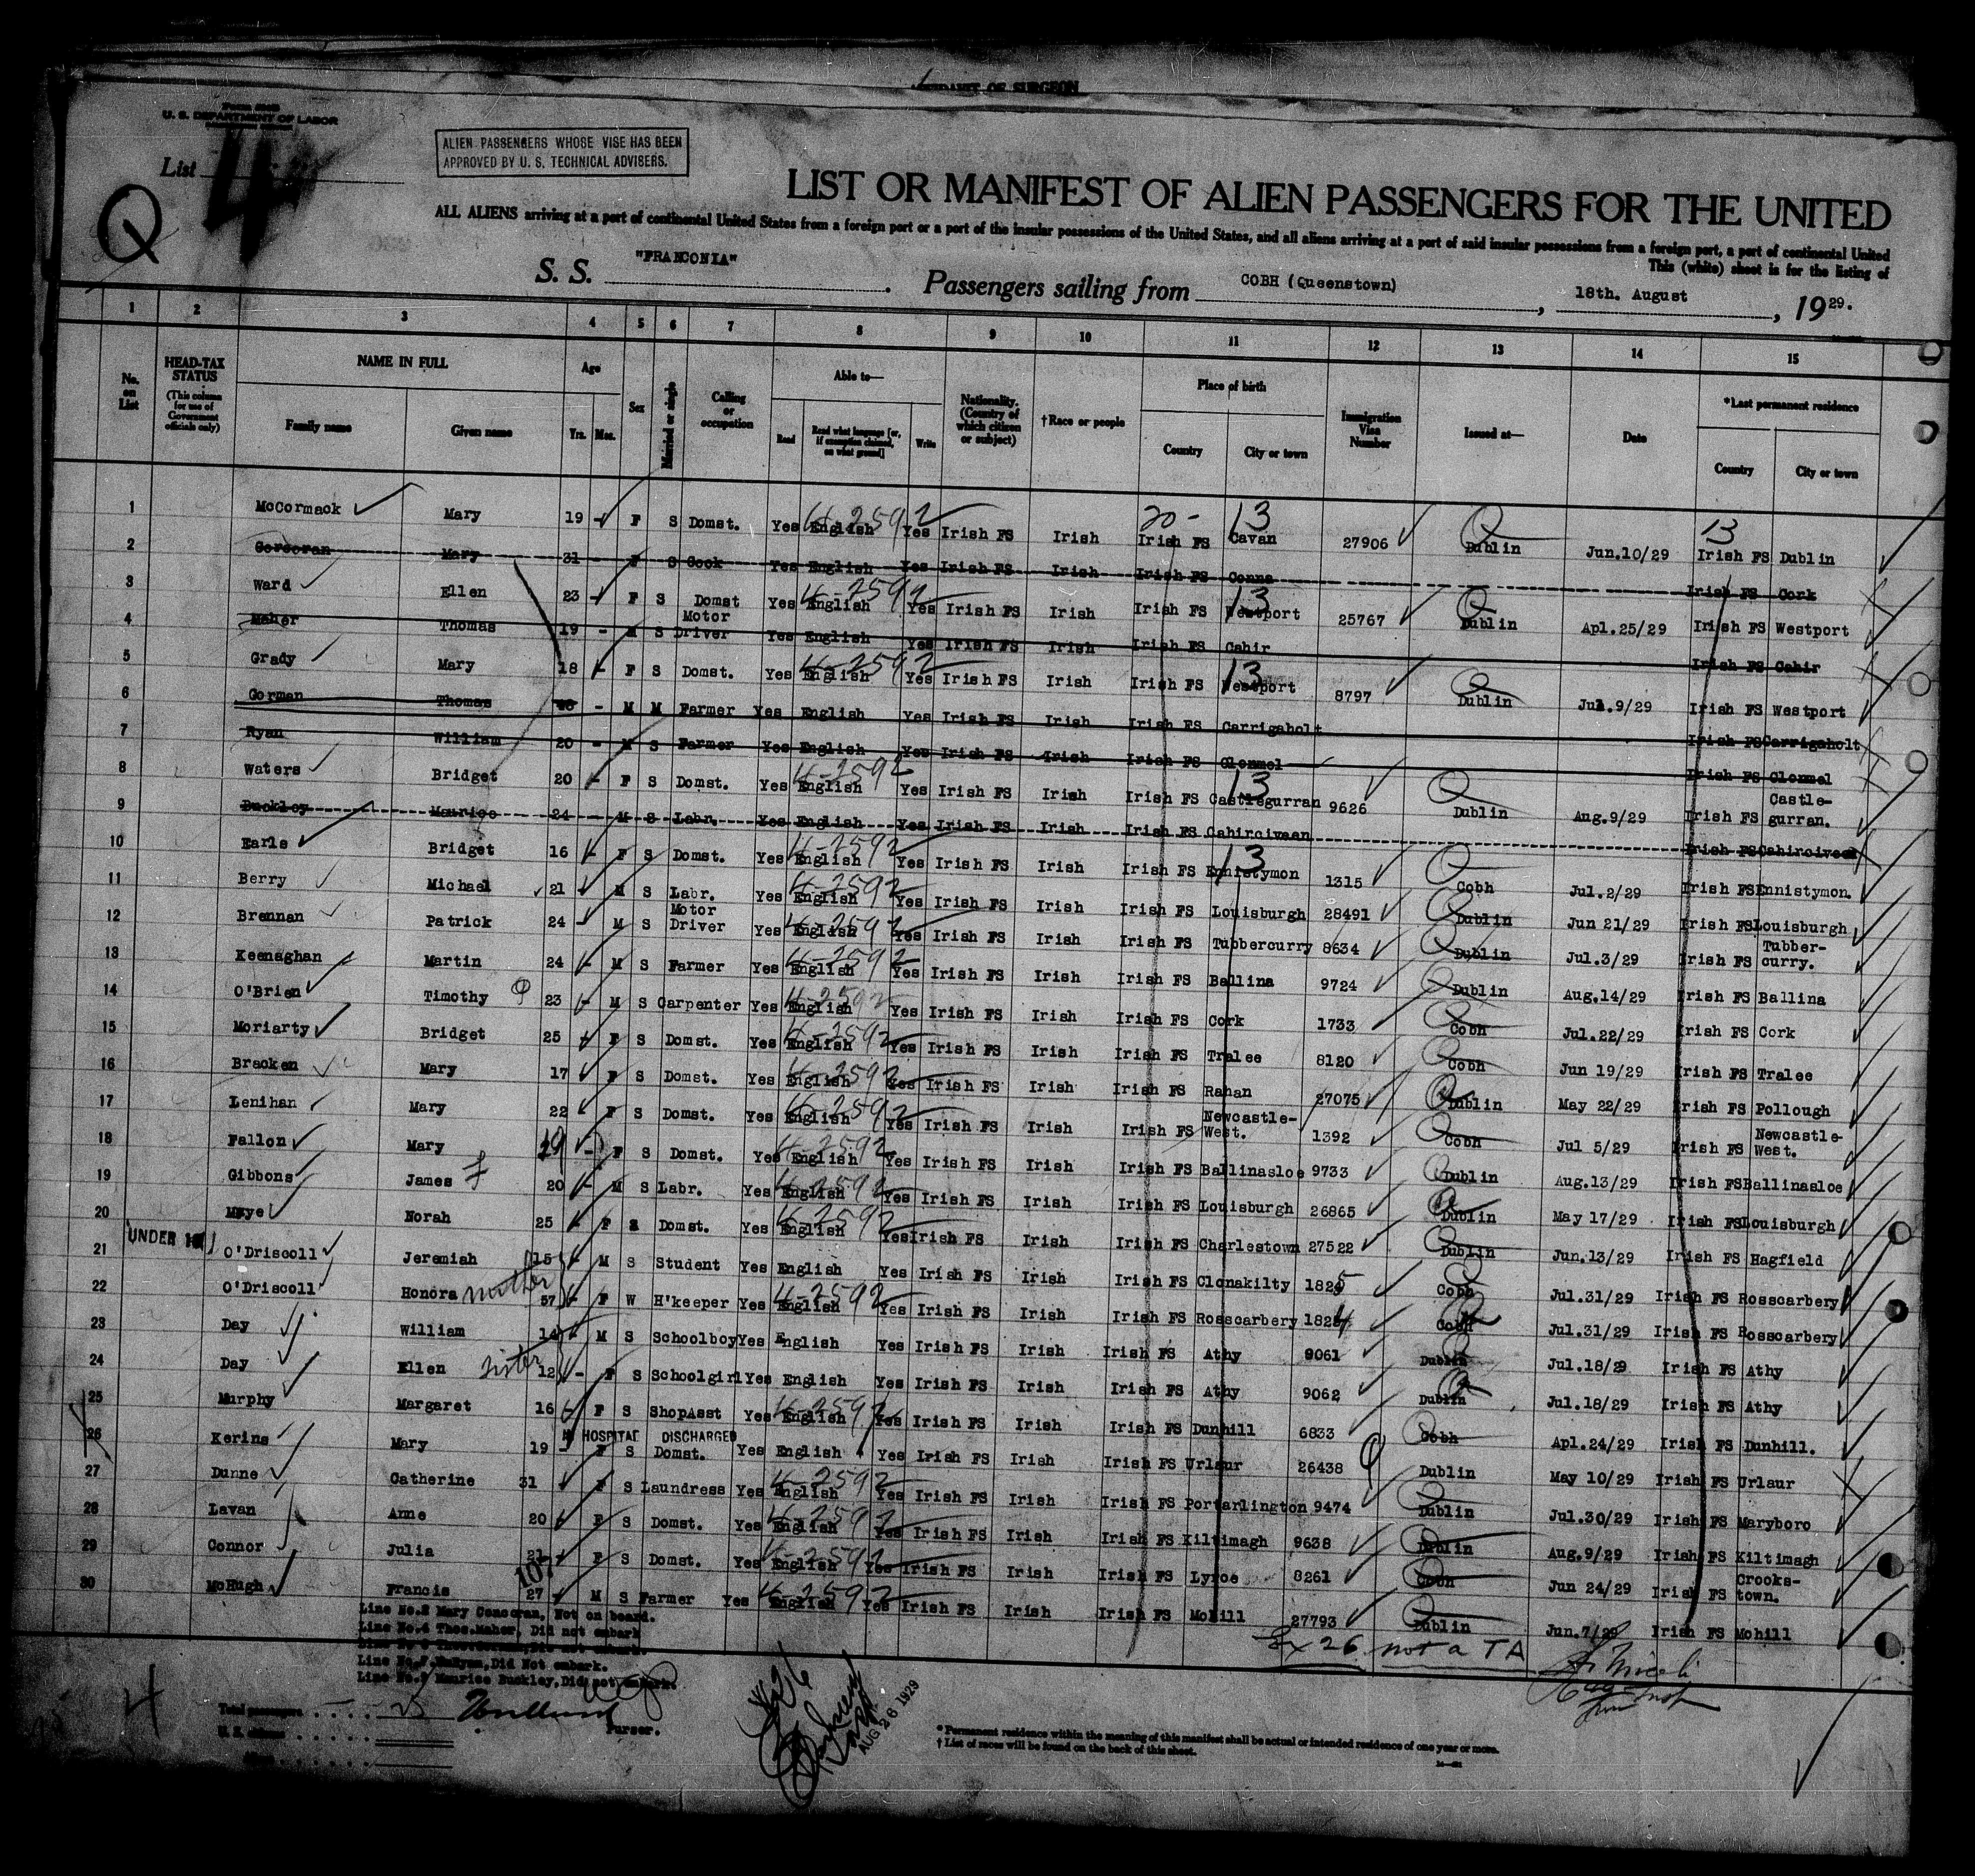 AFFIDAVIT OF SURGEON
U. S. DEPARTMENT OF LABOR
List 4
Q
ALIEN PASSENGERS WHOSE VISE HAS BEEN
APPROVED BY U. S. TECHNICAL ADVISERS.
LIST OR MANIFEST OF ALIEN PASSENGERS FOR THE UNITED
ALL ALIENS arriving at a port of continental United States from a foreign port or a port of the insular possessions of the United States, and all aliens arriving at a port of said insular possessions from a foreign port, a port of continental United
This (white) sheet is for the listing of
S. S. "FRANCONIA" . Passengers sailing from COBH (Queenstown) , 18th. August , 1929.
1 2 3 4 5 6 7 8 9 10 11 12 13 14 15
No. on List HEAD-TAX STATUS (This column for use of Government officials only) NAME IN FULL Family name Given name Age Yrs. Mos. Sex Married or single Calling or occupation Able to— Read Read what language [or, if exemption claimed, on what ground] Write Nationality. (Country of which citizen or subject) †Race or people Place of birth Country City or town Immigration Visa Number Issued at— Date *Last permanent residence Country City or town
1 McCormack Mary 19 - F S Domst. Yes English 4-2592 Yes Irish FS Irish 20- Irish FS 13 Cavan 27906 Dublin Jun.10/29 13 Irish FS Dublin
2 Corcoran Mary 31 - F S Cook Yes English Yes Irish FS Irish Irish FS Conna Irish FS Cork
3 Ward Ellen 23 - F S Domst Yes English 4-2592 Yes Irish FS Irish Irish FS 13 Westport 25767 Dublin Apl.25/29 Irish FS Westport
4 Maher Thomas 19 - M S Motor Driver Yes English Yes Irish FS Irish Irish FS Cahir Irish FS Cahir
5 Grady Mary 18 - F S Domst. Yes English 4-2592 Yes Irish FS Irish Irish FS 13 Westport 8797 Dublin Jul.9/29 Irish FS Westport
6 Gorman Thomas - M M Farmer Yes English Yes Irish FS Irish Irish FS Carrigaholt Irish FS Carrigaholt
7 Ryan William 20 - M S Farmer Yes English Yes Irish FS Irish Irish FS Clonmel Irish FS Clonmel
8 Waters Bridget 20 - F S Domst. Yes English 4-2592 Yes Irish FS Irish Irish FS 13 Castlegurran 9626 Dublin Aug.9/29 Irish FS Castle-gurran.
9 Buckley Maurice 24 - M S Labr. Yes English Yes Irish FS Irish Irish FS Cahirciveen Irish FS Cahirciveen
10 Earls Bridget 16 - F S Domst. Yes English 4-2592 Yes Irish FS Irish Irish FS 13 Ennistymon 1315 Cobh Jul.2/29 Irish FS Ennistymon.
11 Berry Michael 21 - M S Labr. Yes English 4-2592 Yes Irish FS Irish Irish FS Louisburgh 28491 Dublin Jun 21/29 Irish FS Louisburgh
12 Brennan Patrick 24 - M S Motor Driver Yes English 4-2592 Yes Irish FS Irish Irish FS Tubbercurry 8634 Dublin Jul.3/29 Irish FS Tubber-curry.
13 Keenaghan Martin 24 - M S Farmer Yes English 4-2592 Yes Irish FS Irish Irish FS Ballina 9724 Dublin Aug.14/29 Irish FS Ballina
14 O'Brien Timothy 23 - M S Carpenter Yes English 4-2592 Yes Irish FS Irish Irish FS Cork 1733 Cobh Jul.22/29 Irish FS Cork
15 Moriarty Bridget 25 - F S Domst. Yes English 4-2592 Yes Irish FS Irish Irish FS Tralee 8120 Cobh Jun 19/29 Irish FS Tralee
16 Bracken Mary 17 - F S Domst. Yes English 4-2592 Yes Irish FS Irish Irish FS Rahan 27075 Dublin May 22/29 Irish FS Pollough
17 Lenihan Mary 22 - F S Domst. Yes English 4-2592 Yes Irish FS Irish Irish FS Newcastle-West. 1392 Cobh Jul 5/29 Irish FS Newcastle-West.
18 Fallon Mary 29 - F S Domst. Yes English 4-2592 Yes Irish FS Irish Irish FS Ballinasloe 9733 Dublin Aug.13/29 Irish FS Ballinasloe
19 Gibbons James 20 - M S Labr. Yes English 4-2592 Yes Irish FS Irish Irish FS Louisburgh 26865 Dublin May 17/29 Irish FS Louisburgh
20 Norah 25 - F S Domst. Yes English 4-2592 Yes Irish FS Irish Irish FS Charlestown 27522 Dublin Jun.13/29 Irish FS Hagfield
UNDER 16
21 O'Driscoll Jeremiah 15 - M S Student Yes English Yes Irish FS Irish Irish FS Clonakilty 1825 Cobh Jul.31/29 Irish FS Rosscarbery
22 O'Driscoll Honora mother 57 - F W H'keeper Yes English 4-2592 Yes Irish FS Irish Irish FS Rosscarbery 1824 Cobh Jul.31/29 Irish FS Rosscarbery
23 Day William 14 - M S Schoolboy Yes English Yes Irish FS Irish Irish FS Athy 9061 Dublin Jul.18/29 Irish FS Athy
24 Day Ellen sister 12 - F S Schoolgirl Yes English Yes Irish FS Irish Irish FS Athy 9062 Dublin Jul.18/29 Irish FS Athy
25 Murphy Margaret 16 - F S ShopAsst Yes English 4-2592 Yes Irish FS Irish Irish FS Dunhill 6833 Cobh Apl.24/29 Irish FS Dunhill.
HOSPITAL DISCHARGED
26 Kerins Mary 19 - F S Domst. Yes English Yes Irish FS Irish Irish FS Urlaur 26438 Dublin May 10/29 Irish FS Urlaur
27 Dunne Catherine 31 F S Laundress Yes English 4-2592 Yes Irish FS Irish Irish FS Portarlington 9474 Dublin Jul.30/29 Irish FS Maryboro
28 Lavan Anne 20 F S Domst. Yes English 4-2592 Yes Irish FS Irish Irish FS Kiltimagh 9638 Dublin Aug.9/29 Irish FS Kiltimagh
29 Connor Julia 21 F S Domst. Yes English 4-2592 Yes Irish FS Irish Irish FS Lyroe 8261 Cobh Jun 24/29 Irish FS Crooks-town.
30 McHugh Francis 27 - M S Farmer Yes English 4-2592 Yes Irish FS Irish Irish FS Mohill 27793 Dublin Jun.7/29 Irish FS Mohill
Line No.2 Mary Corcoran, Not on board.
Line No.4 Thos.Maher, Did not embark
Line No.7 Ryan, Did Not embark.
Line No.9 Maurice Buckley, Did not embark.
Ex 26 not a TA
4
Total passengers 25
Purser.
U. S. citizens
Aliens
AUG 26 1929
* Permanent residence within the meaning of this manifest shall be actual or intended residence of one year or more.
† List of races will be found on the back of this sheet.